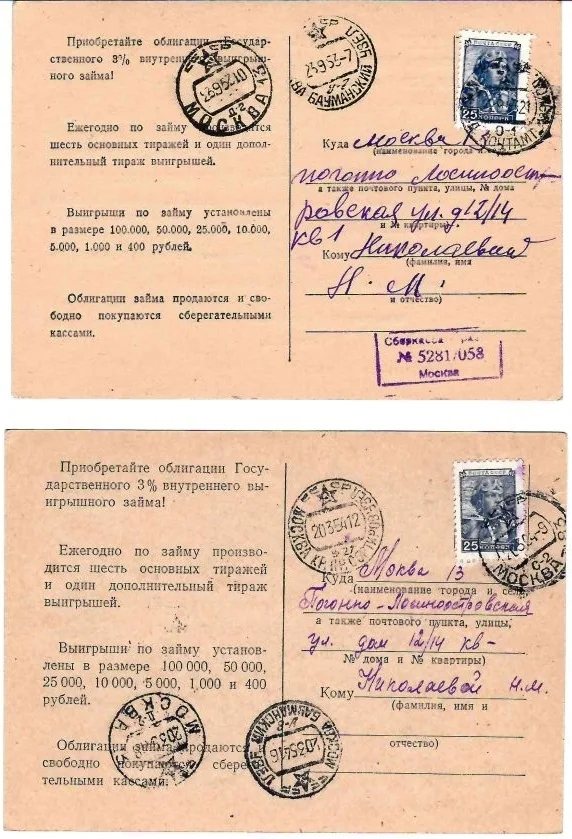 Приобретайте облигации Государ-
ственного 3% внутреннего выигрыш-
ного займа!
Ежегодно по займу производится
шесть основных тиражей и один допол-
нительный тираж выигрышей.
Выигрыши по займу установлены
в размере 100.000, 50.000, 25.000, 10.000,
5.000, 1.000 и 400 рублей.
Облигации займа продаются и сво-
бодно покупаются сберегательными
кассами.
МОСКВА
23952
25
КОПЕЕК
Куда Москва
(наименование города и
погонно Лосиноост-
а также почтового пункта, улицы, № дома
ровская ул. д 12/14
и № квартиры)
кв 1
Кому Николаевой
(фамилия, имя
Н. М.
и отчество)
Сберкасса
№ 5281/058
Москва
Приобретайте облигации Госу-
дарственного 3% внутреннего вы-
игрышного займа!
Ежегодно по займу произво-
дится шесть основных тиражей
и один дополнительный тираж
выигрышей.
Выигрыши по займу установ-
лены в размере 100 000, 50 000,
25 000, 10 000, 5 000, 1 000 и 400
рублей.
Облигации займа продаются
свободно покупаются сберега-
тельными кассами.
МОСКВА
20354
25
КОПЕЕК
МОСКВА
Куда Москва 13
(наименование города и села
Погонно-Лосиноостровская
а также почтового пункта, улицы,
ул. дом 12/14 кв-
№ дома и № квартиры)
Кому Николаевой Н.М.
(фамилия, имя и
отчество)